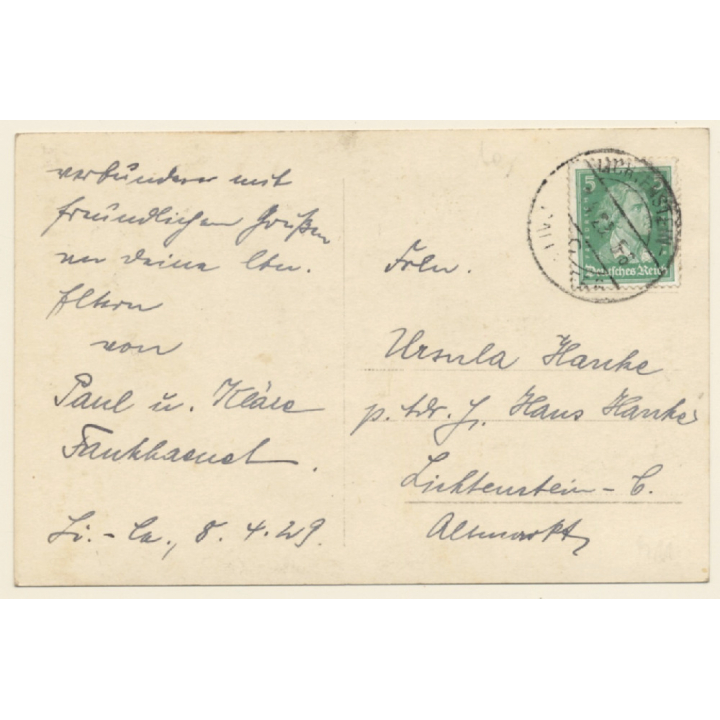 verbunden mit
freundlichen Grüßen
an Deine lbn.
Eltern
von
Paul u. Kläre
Fankhaenel.
Li.-Ca., 8.4.29.
5
Deutsches Reich
Frln.
Ursula Hanke
p. Adr. H. Hans Hanke
Lichtenstein-C.
Altmarkt